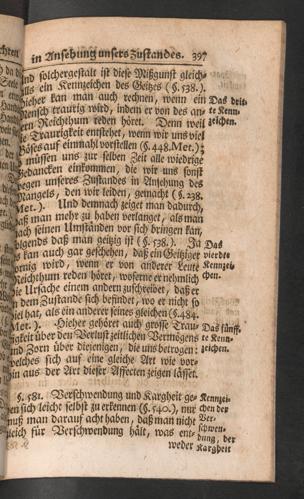 in Ansehung unsers Zustandes. 397
und solchergestalt ist diese Mißgunst gleich-
falls ein Kennzeichen des Geitzes (§. 538.).
Hieher kan man auch rechnen, wenn ein
Mensch traurig wird, indem er von des an-
dern Reichthum reden höret. Denn weil
die Traurigkeit entstehet, wenn wir uns viel
Böses auf einmahl vorstellen (§. 448. Met.);
so müssen uns zur selben Zeit alle wiedrige
Gedancken einkommen, die wir uns sonst
wegen unseres Zustandes in Ansehung des
Mangels, den wir leiden, gemacht (§. 238.
Met.). Und demnach zeiget man dadurch,
daß man mehr zu haben verlanget, als man
nach seinen Umständen vor sich bringen kan,
folgends daß man geitzig ist (§. 538.). Ja
es kan auch gar geschehen, daß ein Geitziger
zornig wird, wenn er von anderer Leute
Reichthum reden höret, woferne er nehmlich
die Ursache einem andern zuschreibet, daß er
in dem Zustande sich befindet, wo er nicht so
viel hat, als ein anderer seines gleichen (§. 484.
Met.). Hieher gehöret auch grosse Trau-
rigkeit über den Verlust zeitlichen Vermögens
und Zorn über diejenigen, die uns betrogen:
welches sich auf eine gleiche Art wie vor-
hin aus der Art dieser Affecten zeigen lässet.
§. 581. Verschwendung und Kargheit ge-
ben sich leicht selbst zu erkennen (§. 540.), nur
muß man darauf acht haben, daß man nicht
gleich für Verschwendung hält, was ent-
weder
Das drit-
te Kenn-
zeichen.
Das
vierdte
Kennzei-
chen.
Das fünff-
te Kenn-
zeichen.
Kennzei-
chen der
Ver-
schwen-
dung, der
Kargheit